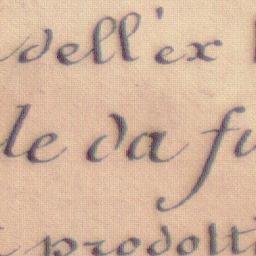 dell'ex
le da fu
prodotti